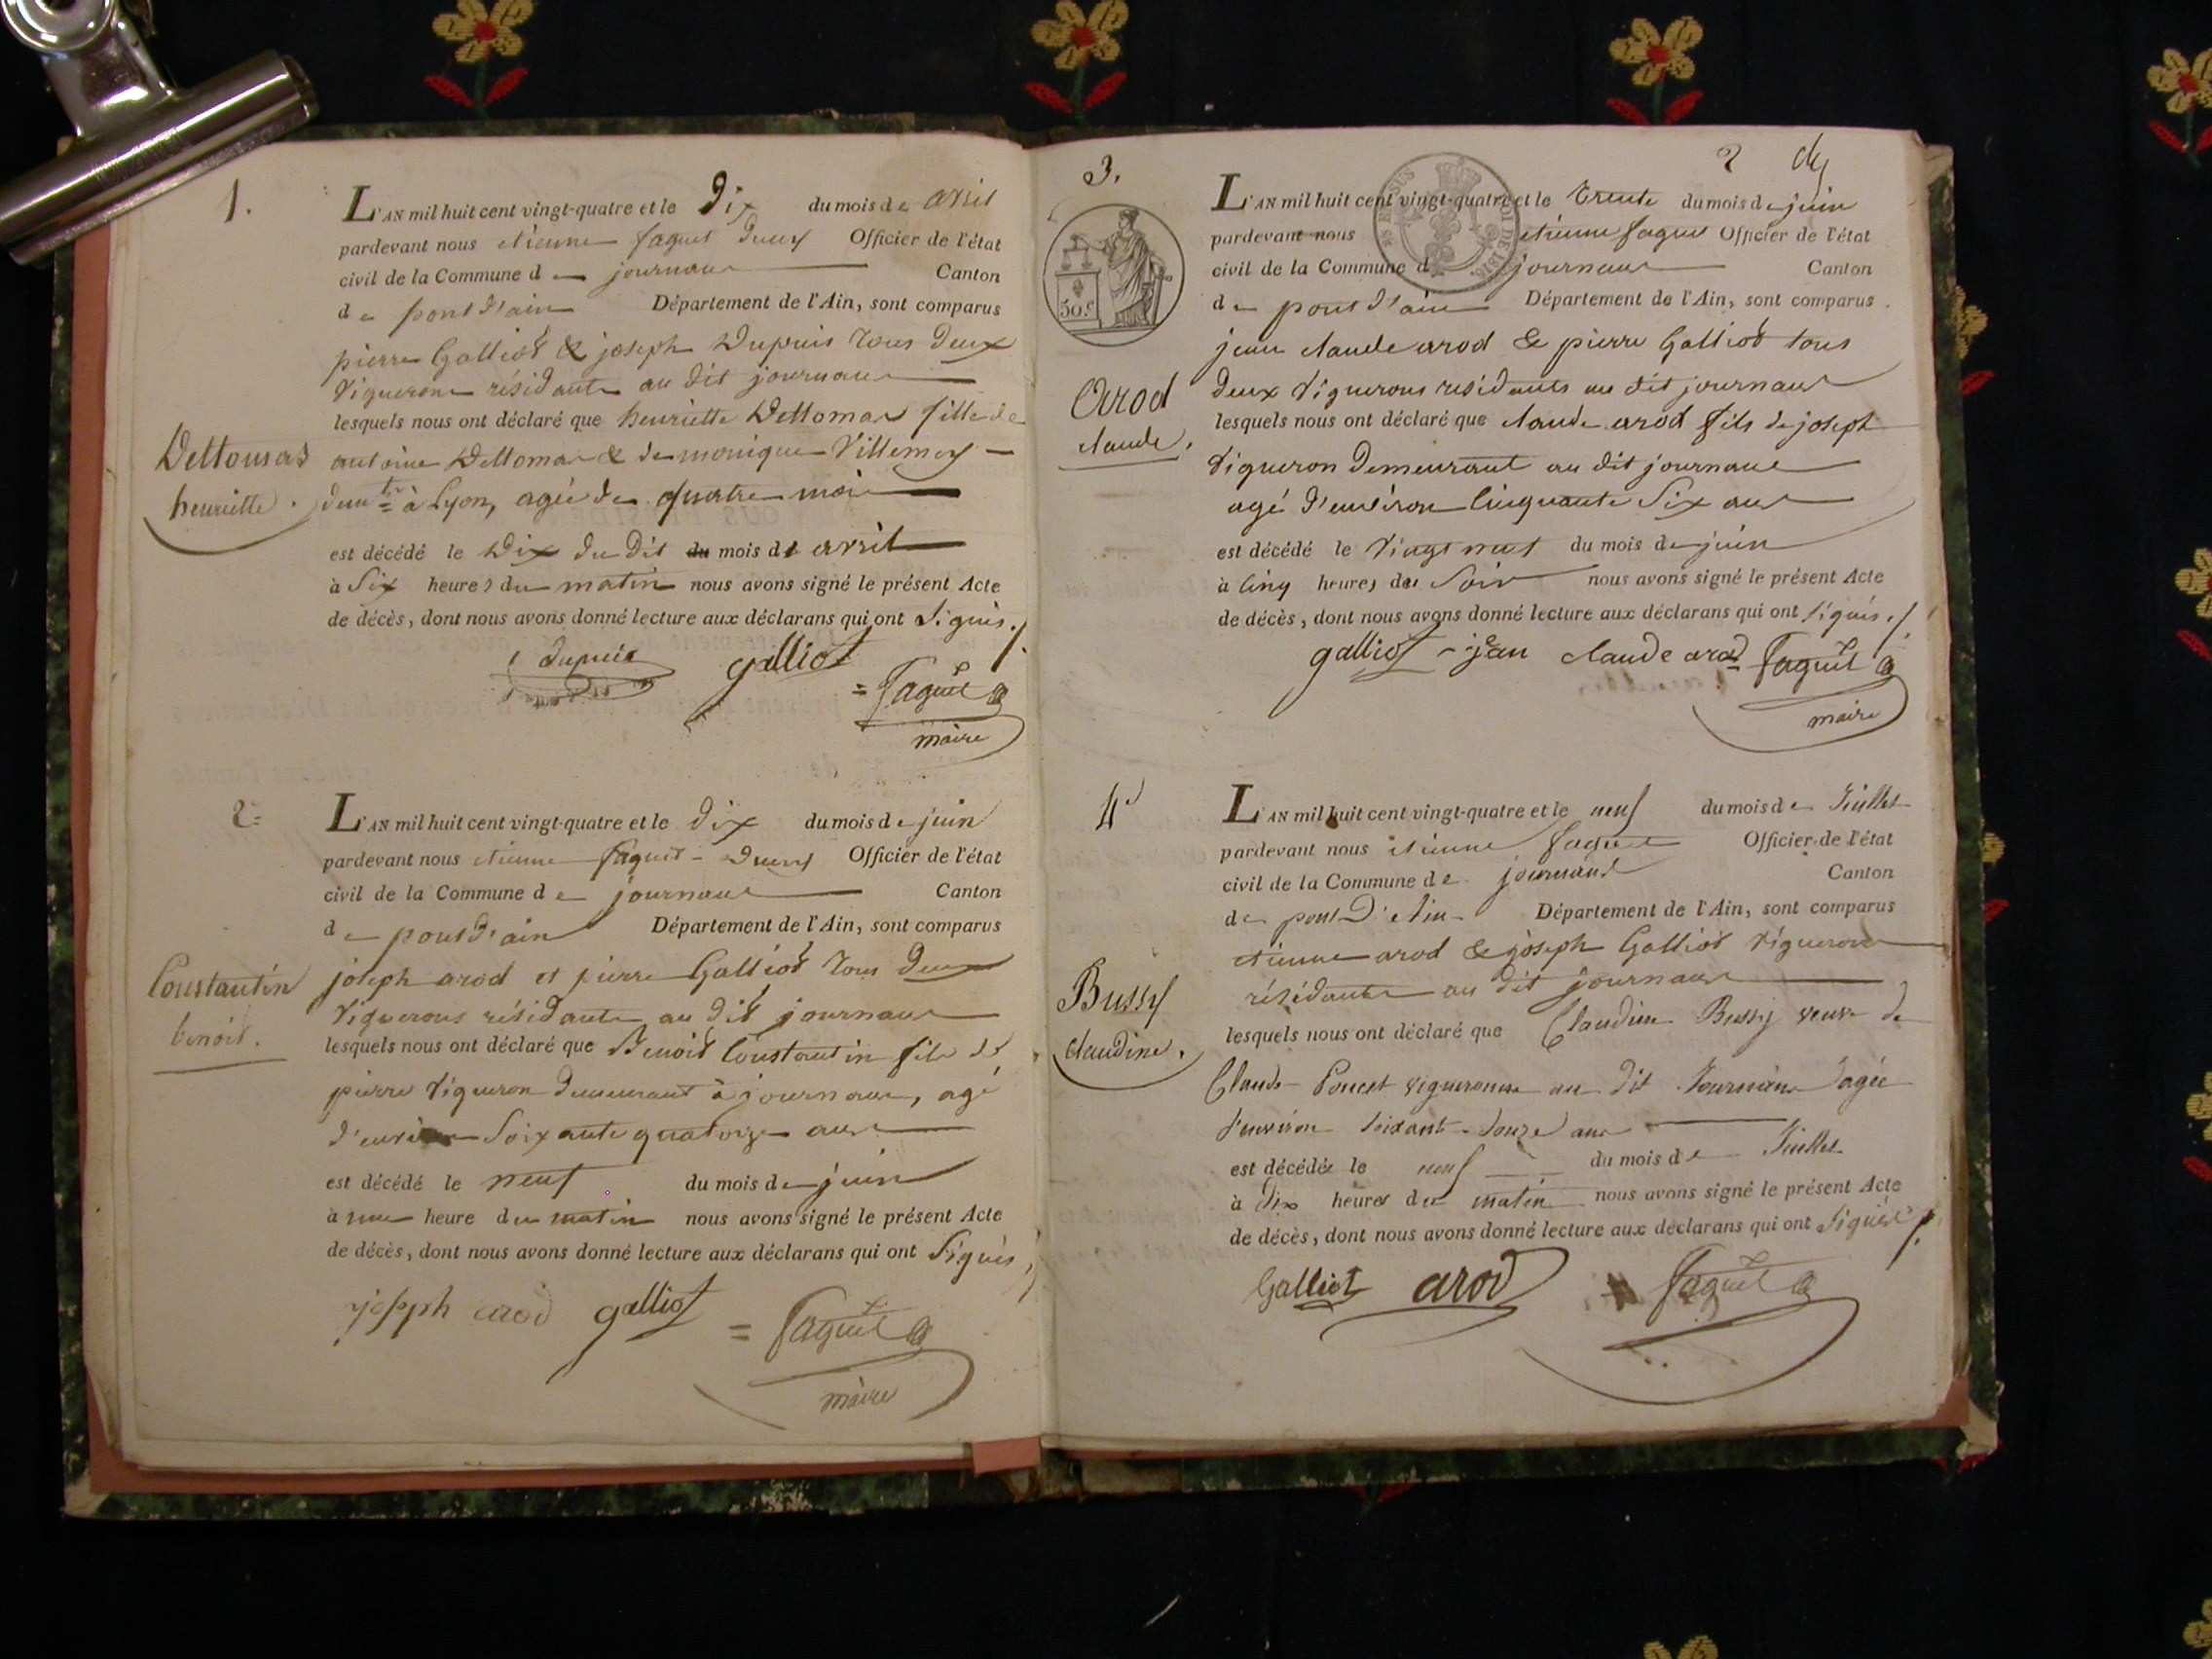 1.
L'AN mil huit cent vingt-quatre et le Dix du mois de avril
pardevant nous etienne faguet Officier de l'état
civil de la Commune de journans Canton
de pont d'ain Département de l'Ain, sont comparus
pierre Galliot & joseph Dupuis tous deux
vignerons résidants au dit journans
lesquels nous ont déclaré que henriette Dellomas fille de
antoine Dellomas & de monique Villemey
Dellomas
henriette.
à Lyon, agée de quatre mois
est décédé le Dix du Dit du mois de avril
à Six heures du matin nous avons signé le présent Acte
de décès, dont nous avons donné lecture aux déclarans qui ont signés./.
dupuis galliot = faguet
maire
2=
L'AN mil huit cent vingt-quatre et le dix du mois de juin
pardevant nous etienne faguet Officier de l'état
civil de la Commune de journans Canton
de pont d'ain Département de l'Ain, sont comparus
Constantin
benoit.
joseph arod et pierre Galliot tous deux
vignerons résidants au dit journans
lesquels nous ont déclaré que Benoit Constantin fils de
pierre vigneron demeurant à journans, agé
d'environ Soixante quatorze ans
est décédé le neuf du mois de juin
à une heure du matin nous avons signé le présent Acte
de décès, dont nous avons donné lecture aux déclarans qui ont signés
joseph arod galliot = faguet
maire
2
3.
L'AN mil huit cent vingt-quatre et le trente du mois de juin
pardevant nous etienne faguet Officier de l'état
civil de la Commune d journans Canton
de pont d'ain Département de l'Ain, sont comparus
50.c
jean claude arod & pierre Galliot tous
Arod
claude.
deux vignerons residants au dit journans
lesquels nous ont déclaré que claude arod fils de joseph
vigneron demeurant au dit journans
agé d'environ Cinquante Six ans
est décédé le vingt neuf du mois de juin
à Cinq heures du Soir nous avons signé le présent Acte
de décès, dont nous avons donné lecture aux déclarans qui ont signés./.
galliot - jean claude arod faguet
maire
4
L'AN mil huit cent vingt-quatre et le neuf du mois de Juillet
pardevant nous etienne faguet Officier de l'état
civil de la Commune de journans Canton
de pont D'Ain Département de l'Ain, sont comparus
etienne arod & joseph Galliot vignerons
résidants au dit journans
Bussy
claudine.
lesquels nous ont déclaré que Claudine Bussy veuve de
Claude Poncet vigneronne au dit Journans agée
d'environ soixante douze ans
est décédée le neuf du mois de Juillet
à dix heures du matin nous avons signé le présent Acte
de décès, dont nous avons donné lecture aux déclarans qui ont signés
Galliot arod faguet